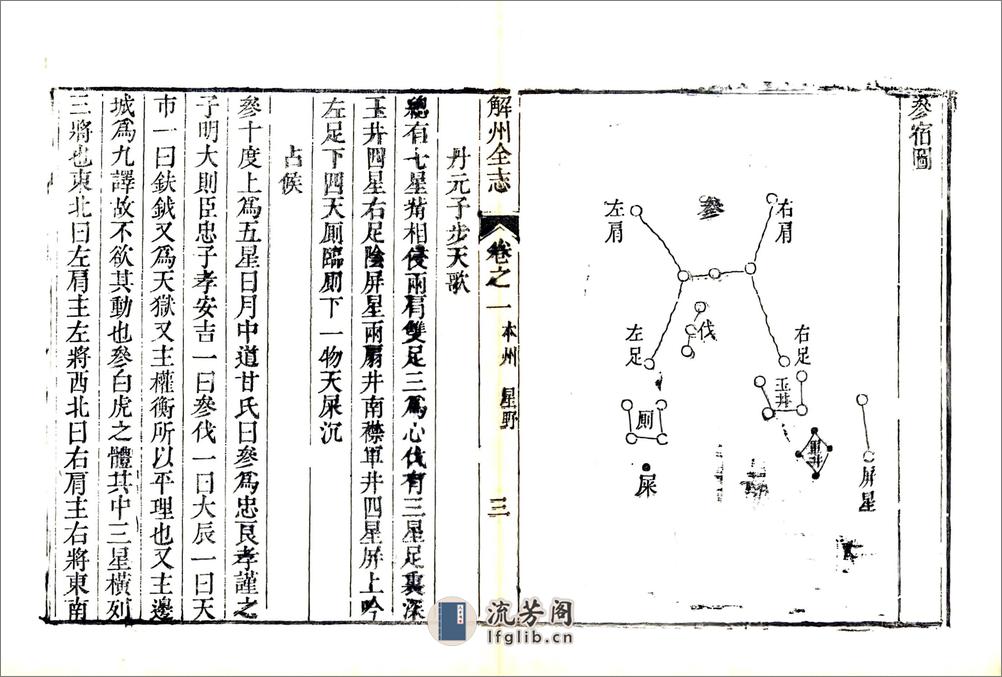 參宿圖
參
右肩
左肩
伐
右足
左足
玉井
軍井
廁
屎
屏星
解州全志
卷之一
本州 星野
三
丹元子步天歌
總有七星觜相侵兩肩雙足三爲心伐有三星足裏深
玉井四星右足陰屏星兩扇井南襟軍井四星屏上吟
左足下四天厠臨厠下一物天屎沉
占候
參十度上爲五星日月中道甘氏曰參爲忠良孝謹之
子明大則臣忠子孝安吉一曰參伐一曰大辰一曰天
市一曰鈇鉞又爲天獄又主權衡所以平理也又主邊
城爲九譯故不欲其動也參白虎之體其中三星橫列
三將也東北曰左肩主左將西北曰右肩主右將東南
流芳阁
lfglib.cn